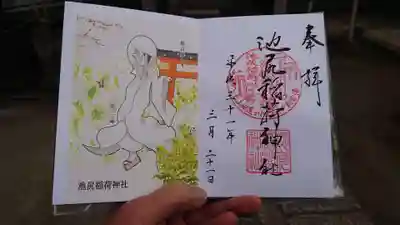 奉拝
池尻稲荷神社
平成三十一年
三月二十一日
池尻稲荷神社